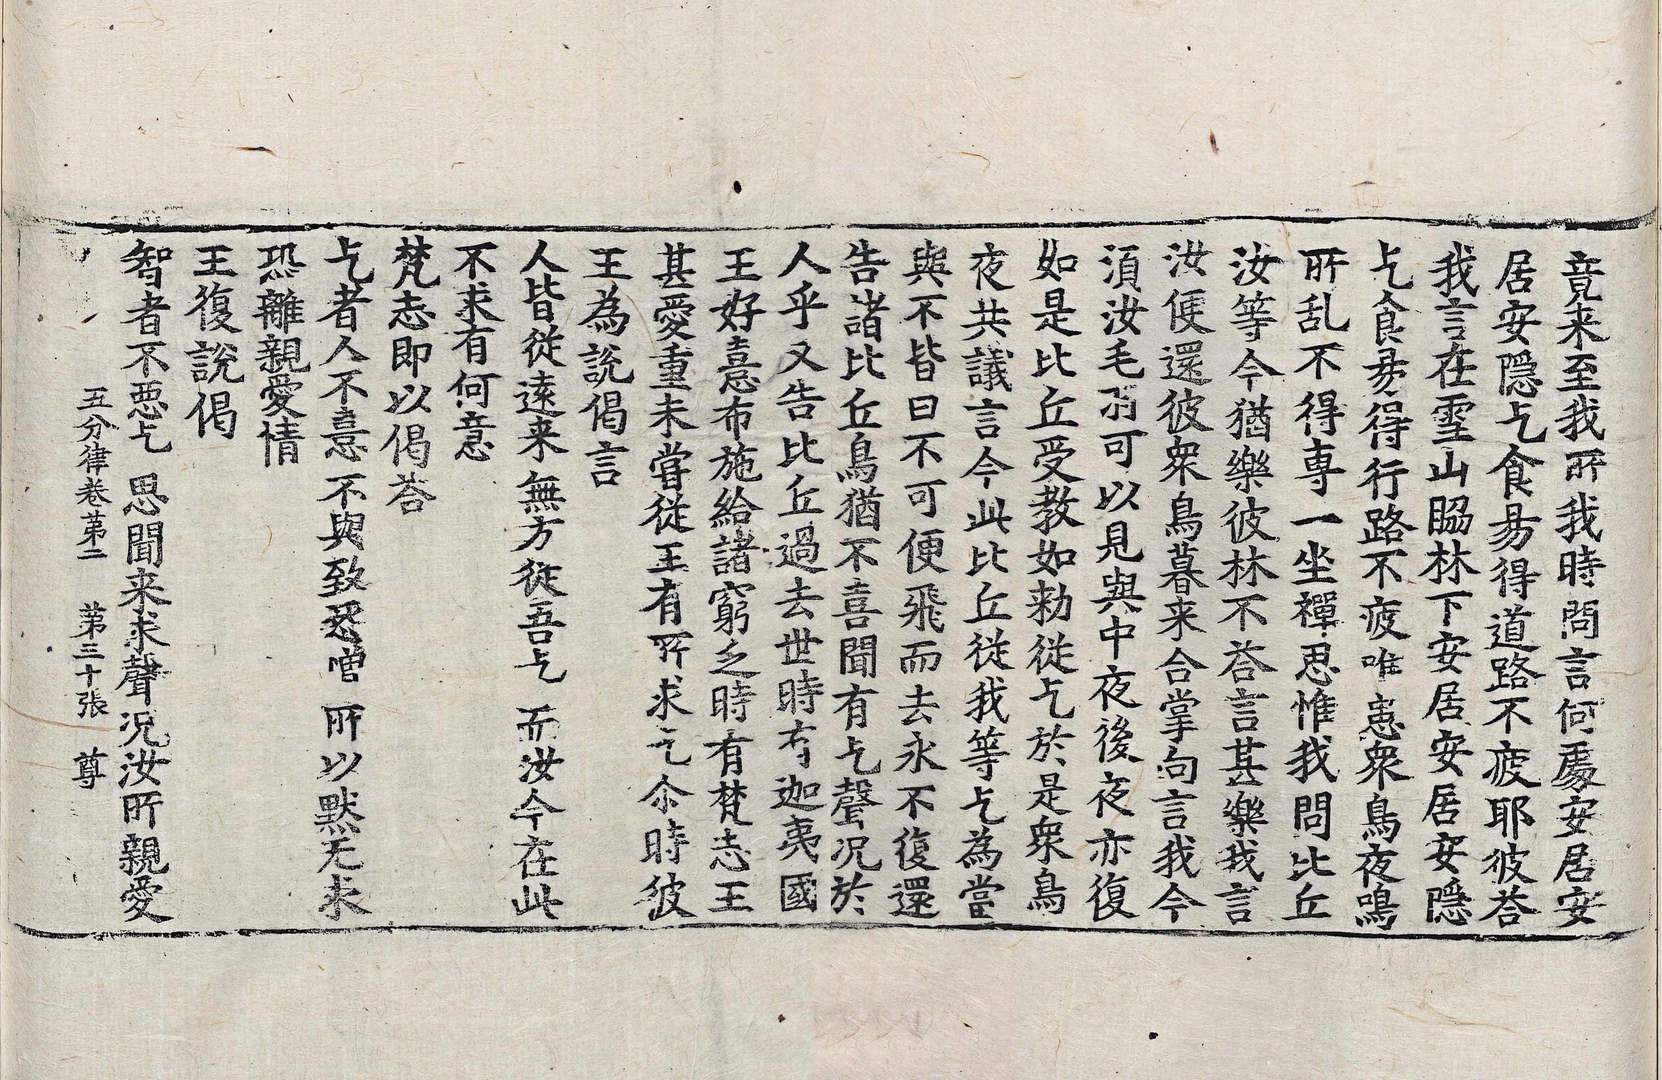 竟来至我所我時問言何處安居安
居安隠乞食易得道路不疲耶彼荅
我言在雪山脇林下安居安居安隠
乞食易得行路不疲唯患衆鳥夜鳴
所乱不得専一坐禪思惟我問比丘
汝等今猶樂彼林不荅言甚樂我言
汝便還彼衆鳥暮来合掌向言我今
湏汝毛羽可以見與中夜後夜亦復
如是比丘受教如勑従乞於是衆鳥
夜共議言今此比丘従我等乞為當
與不皆曰不可便飛而去永不復還
告諸比丘鳥猶不喜聞有乞聲况於
人乎又告比丘過去世時有迦夷國
王好憙布施給諸窮乏時有梵志王
甚愛重未甞従王有所求乞尒時彼
王為說偈言
人皆従逺来 無方従吾乞 而汝今在此
不求有何意
梵志即以偈荅
乞者人不憙 不與致怨憎 所以黙无求
恐離親愛情
王復說偈
智者不惡乞 思聞来求聲 况汝所親愛
五分律卷第二 第三十張 尊